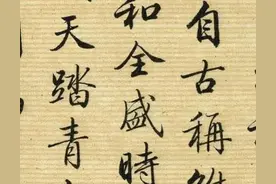 自古稱
和全盛時
天踏青